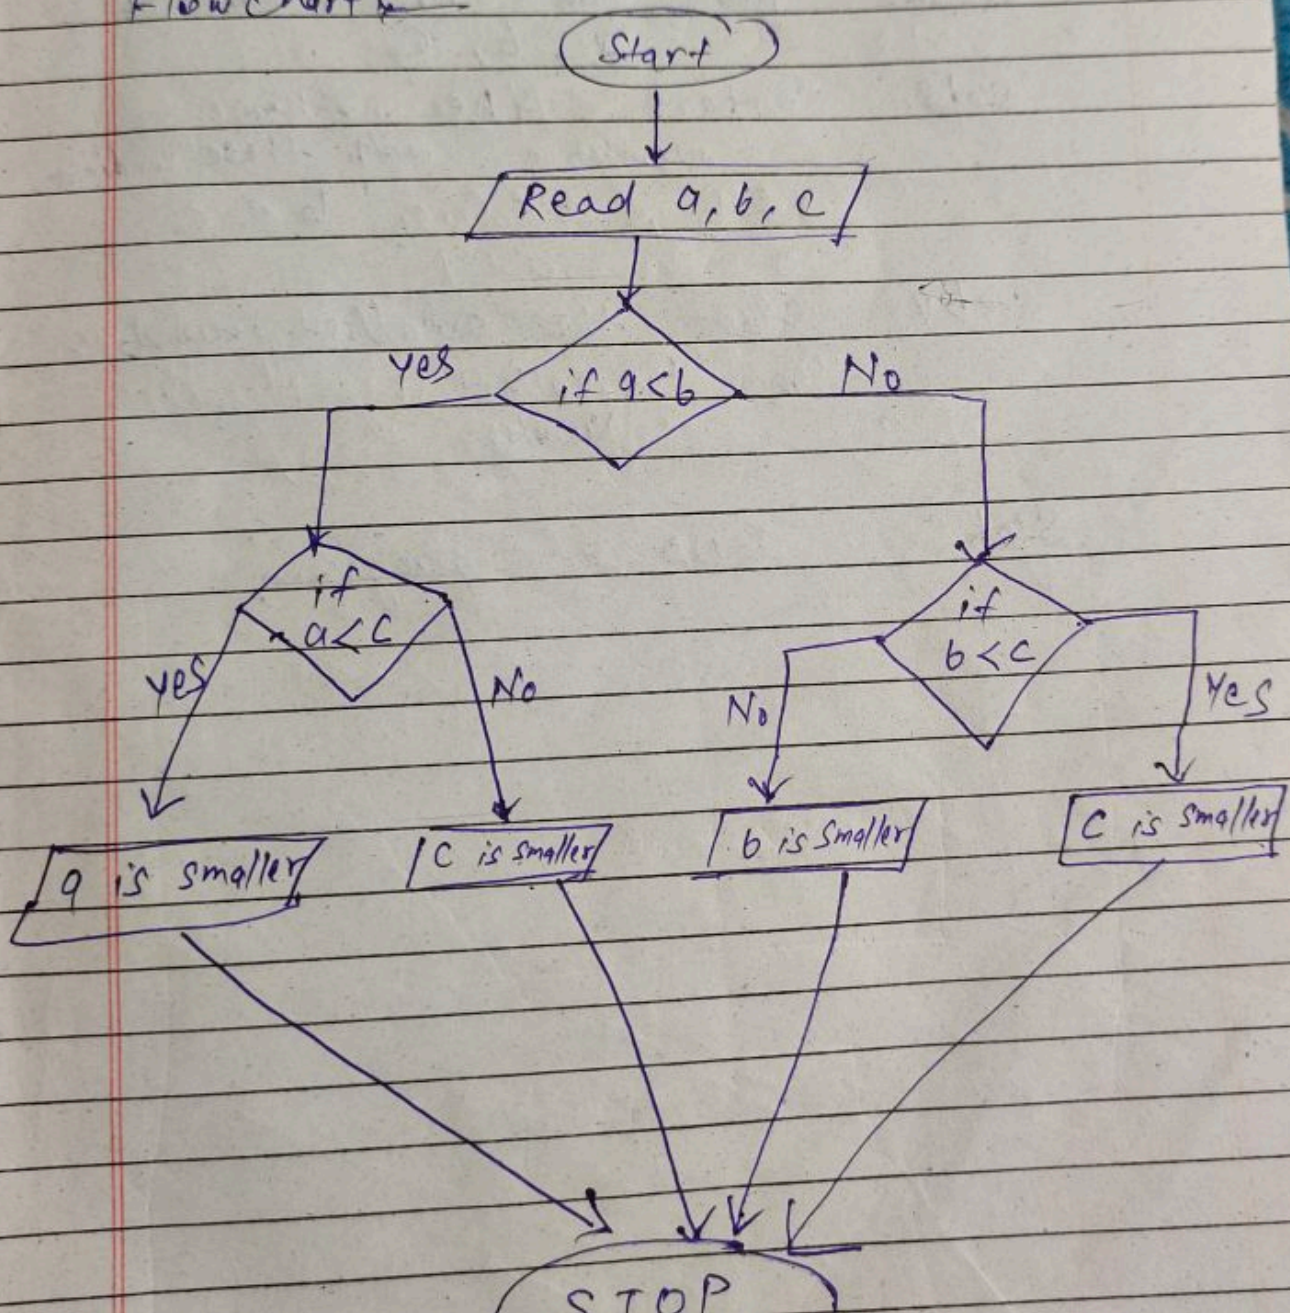 Flow Chart
Start
Read a, b, c
if a<b
Yes
No
if
a<c
Yes
No
if
b<c
No
Yes
a is smaller
c is smaller
b is smaller
c is smaller
STOP